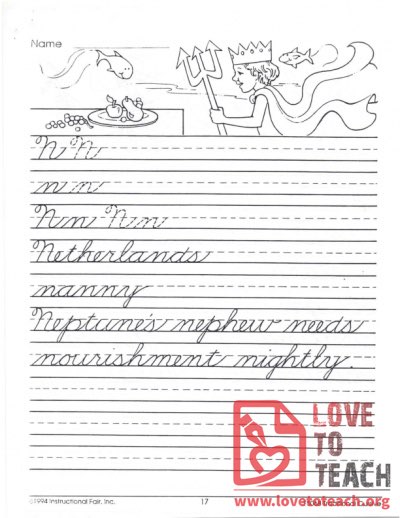 Name
N N
n n
Nn Nn
Netherlands
nanny
Neptune's nephew needs
nourishment nightly.
LOVE
TO
TEACH
www.lovetoteach.org
©1994 Instructional Fair, Inc.
17